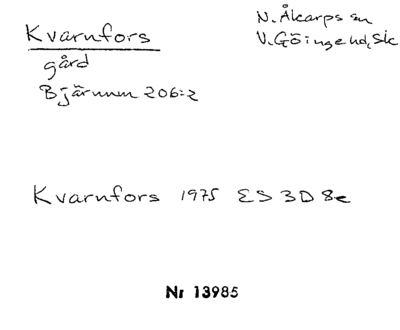 Kvarnfors
gård
Bjärnum 206:2
N. Åkarps sn
V. Göinge hd, Sk
Kvarnfors 1975 ES 3D 8c
Nr 13985